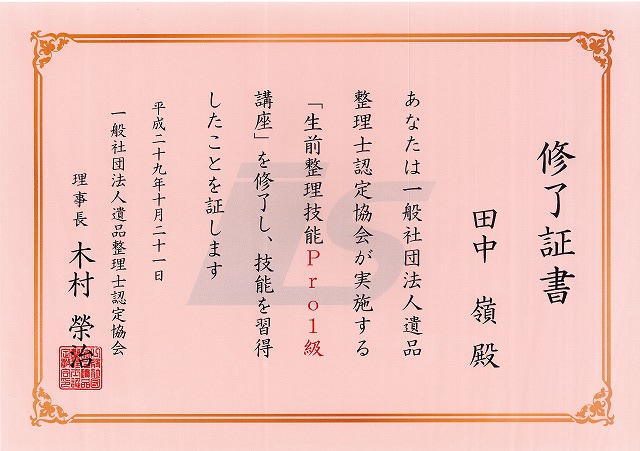 修了証書
田中 嶺 殿
あなたは一般社団法人遺品
整理士認定協会が実施する
「生前整理技能Pro1級
講座」を修了し、技能を習得
したことを証します
平成二十九年十月二十一日
一般社団法人遺品整理士認定協会
理事長 木村 榮治